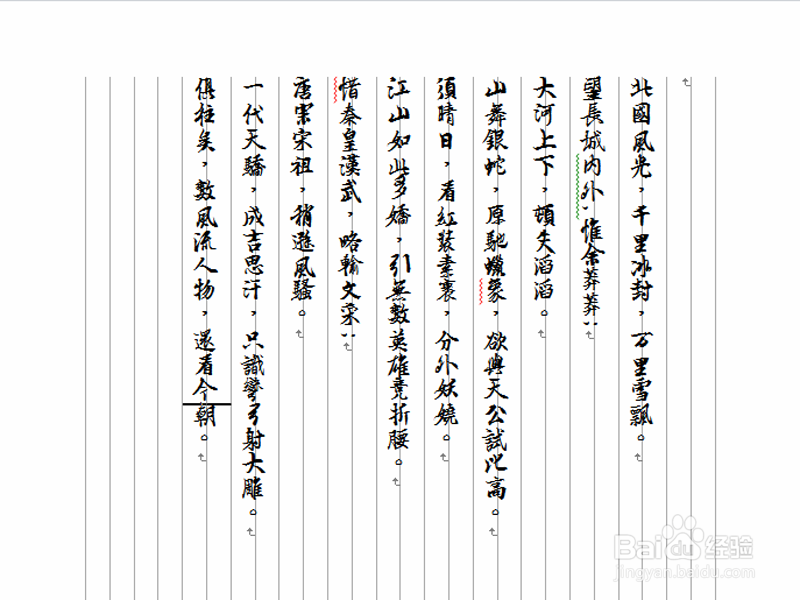 北國風光，千里冰封，万里雪飄。
望長城内外，惟余莽莽；
大河上下，頓失滔滔。
山舞銀蛇，原馳蠟象，欲與天公試比高。
須晴日，看紅裝素裹，分外妖嬈。
江山如此多嬌，引無數英雄竞折腰。
惜秦皇漢武，略輸文采；
唐宗宋祖，稍遜風騷。
一代天驕，成吉思汗，只識彎弓射大雕。
俱往矣，數風流人物，還看今朝。
Baidu经验
jingyan.baidu.com